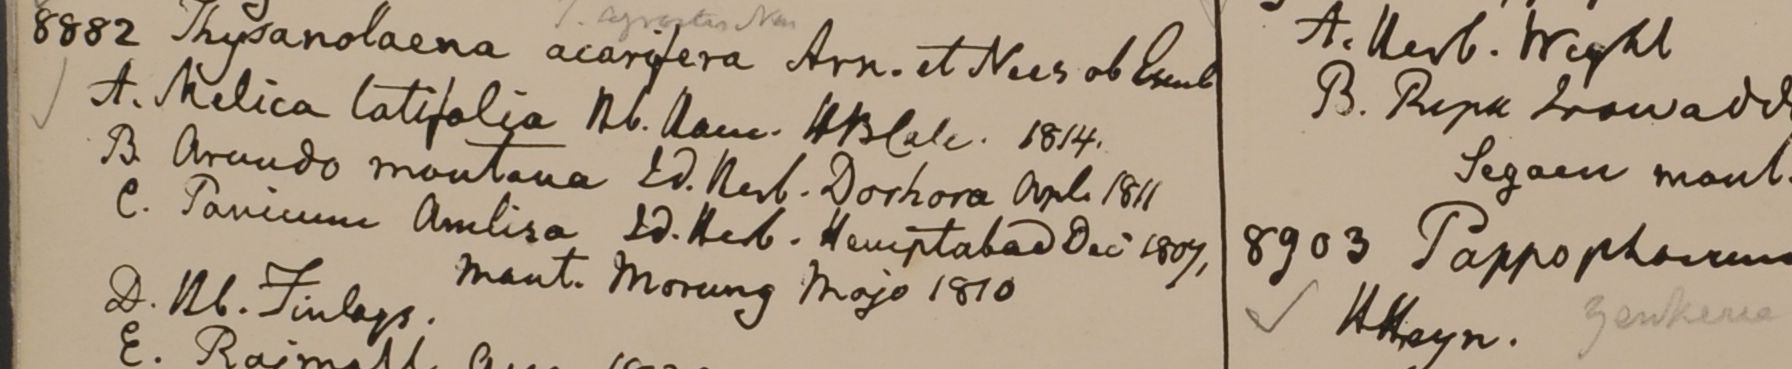 8882 Thysanolaena acarifera Arn. et Nees ab Esenb
A. Melica latifolia Rb. Ham. HBCalc. 1814.
B. Arundo montana Ed. Herb. Dorhora Apl. 1811
C. Panicum Amlisa Ed. Herb. Hemptabad Dec 1807,
Mont. Morung Majo 1810
D. Hb. Finlays.
E.
A. Herb. Wight
B. Ripa Irawadd
Segaen mont.
8903 Pappophorum
HHeyn. Zenkeria